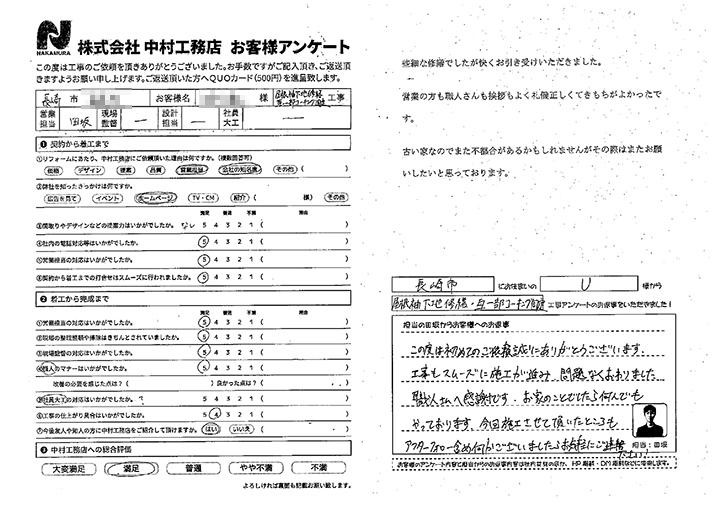 NAKAMURA
株式会社 中村工務店 お客様アンケート
この度は工事のご依頼を頂きありがとうございました。お手数ですがご記入頂き、ご返送頂
きますようお願い申し上げます。ご返送頂いた方へQUOカード(500円)を進呈致します。
長崎 市 お客様名 様 工事
営業担当 田坂 現場監督 ー 設計担当 ー 社員大工 ー
❶ 契約から着工まで
①リフォームにあたり、中村工務店にご依頼頂いた理由は何ですか。(複数回答可)
価格 デザイン 提案 品質 営業担当 会社の知名度 その他( )
②弊社を知ったきっかけは何ですか。
広告を見て イベント ホームページ TV・CM 紹介( 様) その他
満足 普通 不満 理由
③間取りやデザインなどの提案力はいかがでしたか。 なし 5 4 3 2 1 ( )
④社内の電話対応等はいかがでしたか。 5 4 3 2 1 ( )
⑤営業担当の対応はいかがでしたか。 5 4 3 2 1 ( )
⑥契約から着工までの打合せはスムーズに行われましたか。 5 4 3 2 1 ( )
❷ 着工から完成まで
満足 普通 不満 理由
①営業担当の対応はいかがでしたか。 5 4 3 2 1 ( )
②現場の整理整頓や掃除はきちんとされていましたか。 5 4 3 2 1 ( )
③現場監督の対応はいかがでしたか。 5 4 3 2 1 ( )
④職人のマナーはいかがでしたか。 5 4 3 2 1 ( )
改善の必要を感じた点は?( )良かった点は?( )
⑤社員大工の対応はいかがでしたか。 5 4 3 2 1 ( )
⑥工事の仕上がり具合はいかがでしたか。 5 4 3 2 1 ( )
⑦今後友人や知人の方に中村工務店をご紹介して頂けますか。 はい いいえ ( )
❸ 中村工務店への総合評価
大変満足 満足 普通 やや不満 不満
よろしければ裏面も記載お願い致します。
些細な修繕でしたが快くお引き受けいただきました。
営業の方も職人さんも挨拶もよく礼儀正しくてきもちがよかったで
す。
古い家なのでまた不都合があるかもしれませんがその際はまたお願
いしたいと思っております。
長崎市 にお住まいの U 様から
工事アンケートのお返事をいただきました!
担当の田坂からお客様へのお返事
この度は初めてのご依頼誠にありがとうございます。
工事もスムーズに施工が進み、問題なくおわりました
職人さんへ感謝です。お家のことでしたら何んでも
やっております。今回施工させて頂いたところも
アフターフォロー含め何かございましたらお気軽にご連絡
下さい!
担当:田坂